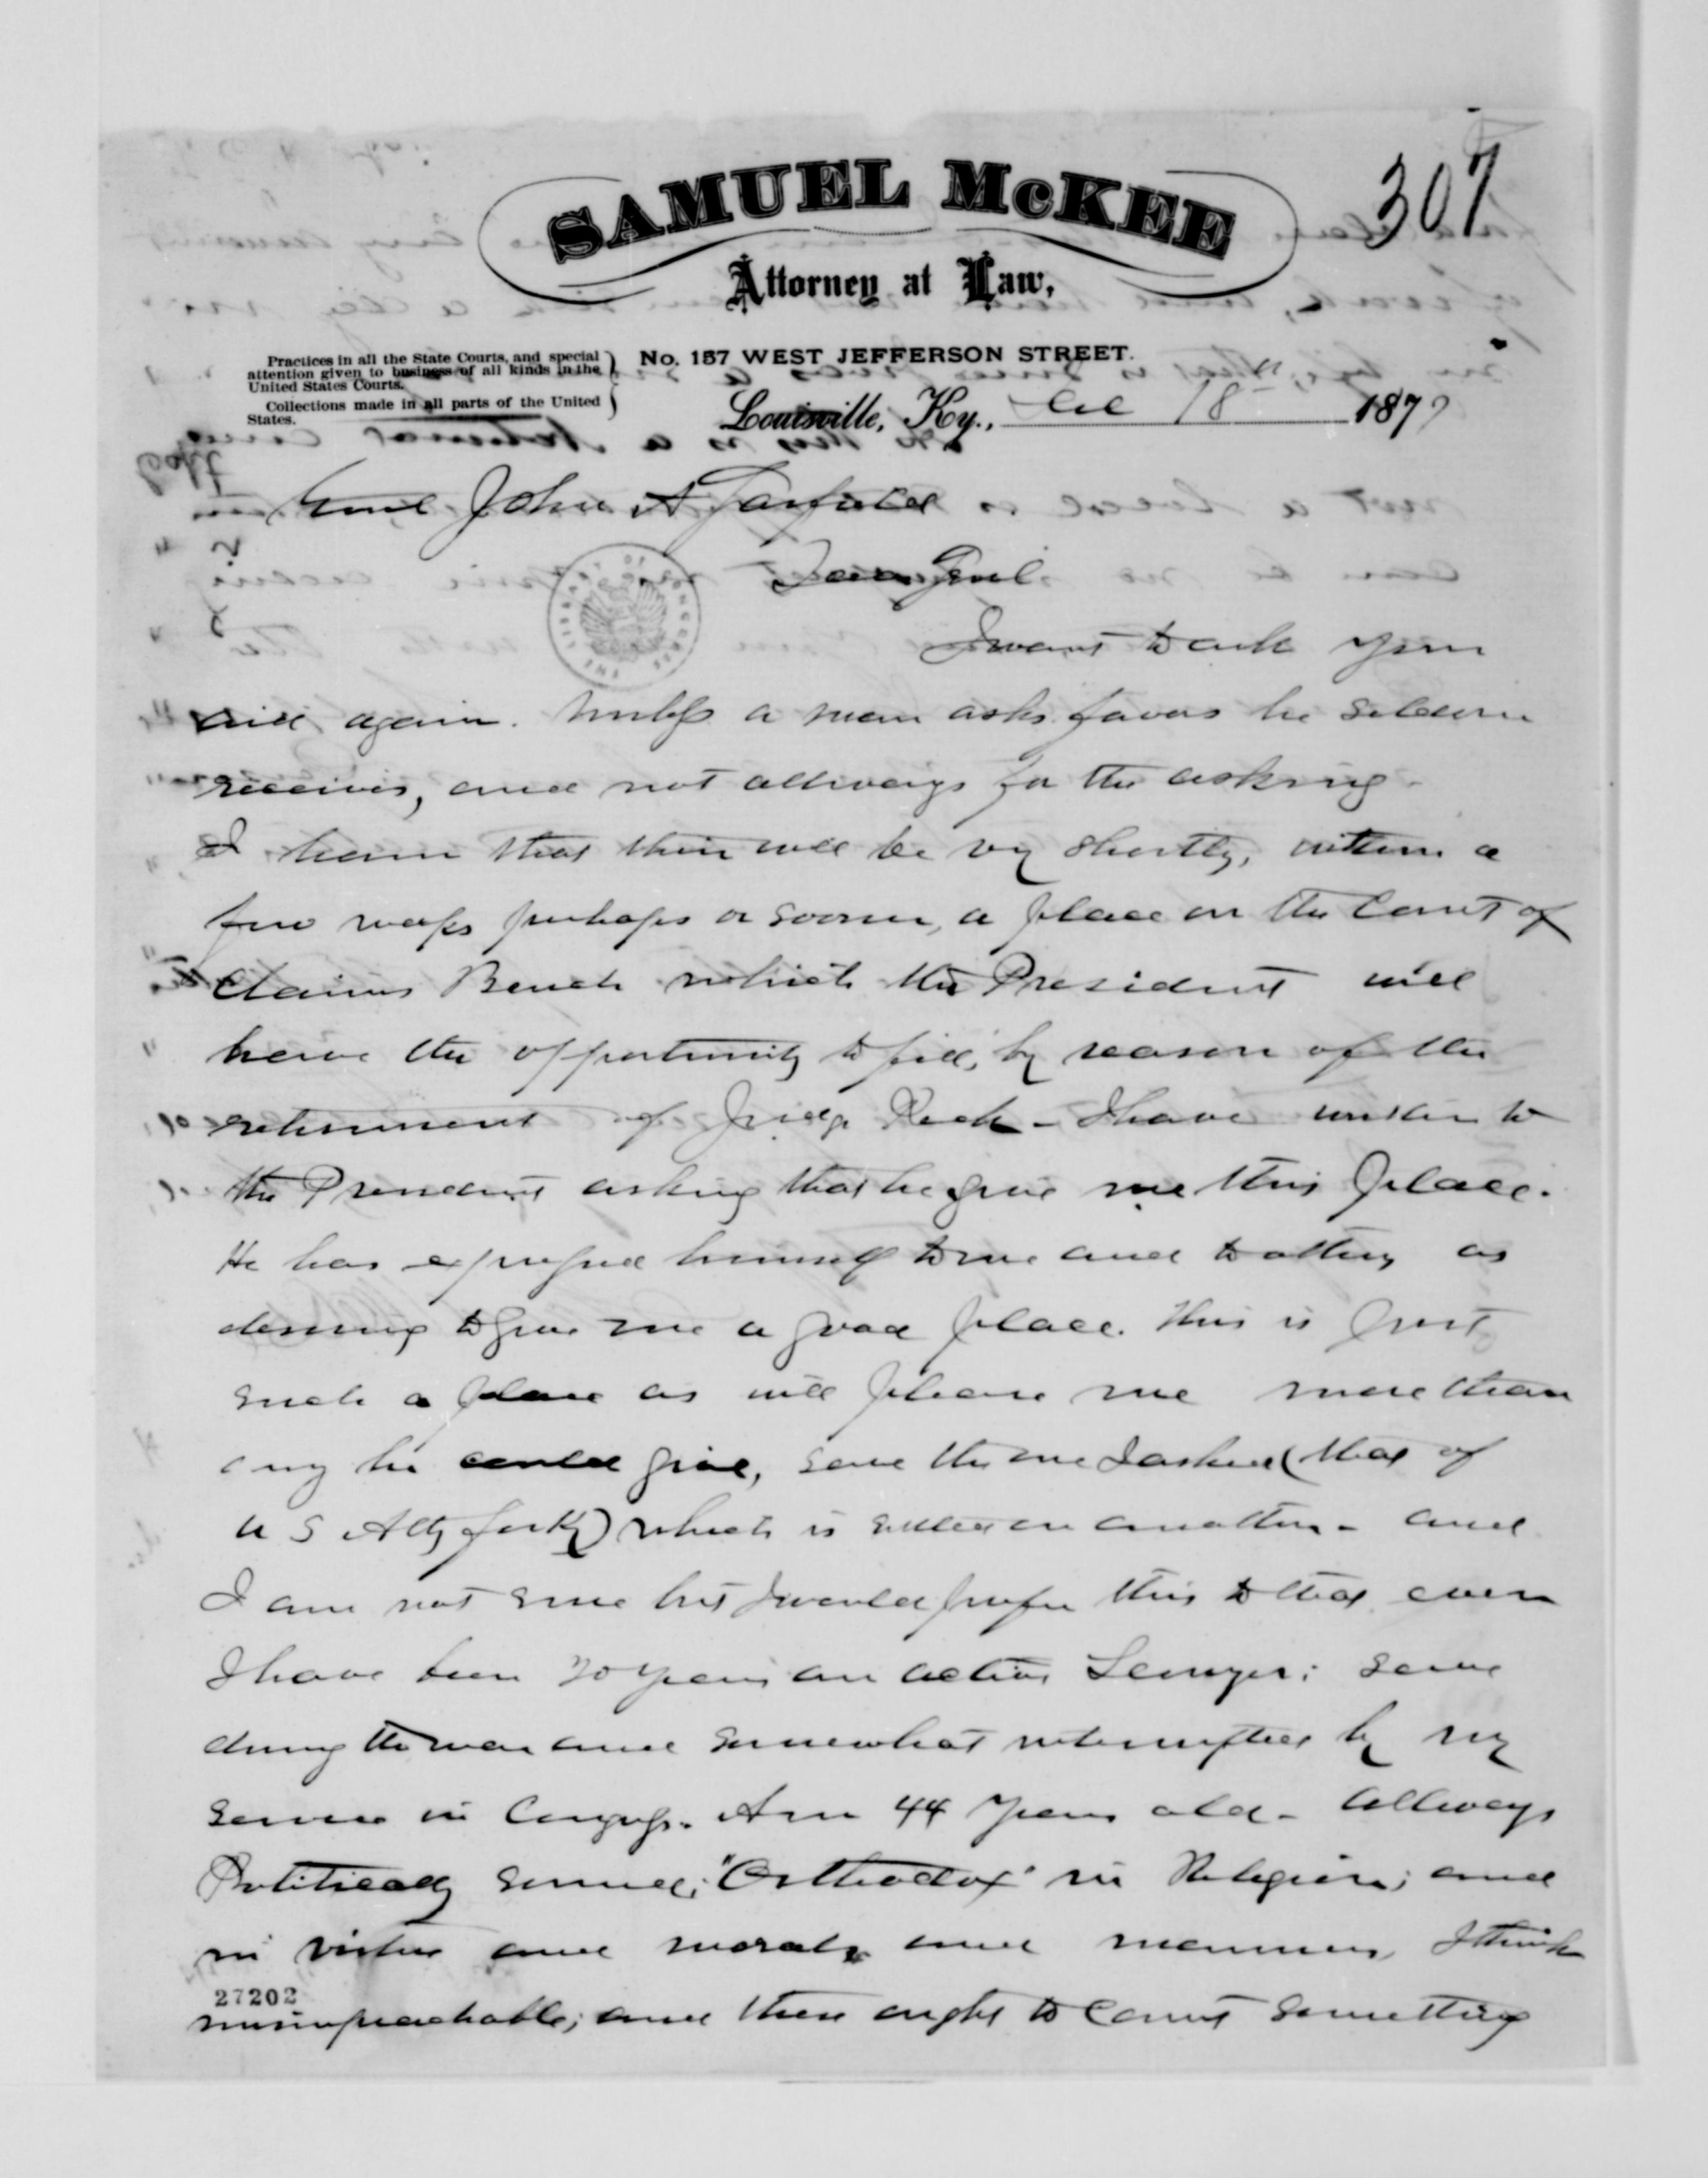 307
SAMUEL McKEE
Attorney at Law,
Practices in all the State Courts, and special
attention given to business of all kinds in the
United States Courts.
Collections made in all parts of the United
States.
No. 157 WEST JEFFERSON STREET.
Louisville, Ky., Dec 18th 1877
Genl John A Garfield
Dear Genl.
I want to ask your
aid again. Unless a man asks favors he seldom
receives, and not allways for the asking.
I learn that there will be vy shortly, within a
few weeks perhaps or sooner, a place on the Court of
Claims Bench which the President will
have the opportunity to fill, by reason of the
retirement of Judge Peck - I have written to
the President asking that he give me this place.
He has expressed himself to me and to others as
desiring to give me a good place. This is just
such a place as will please me more than
any he could give, save the one I asked (that of
U S Atty for Ky) which is settled on another - and
I am not sure but I would prefer this to that even
I have been 20 years an active Lawyer; save
during the war and somewhat interrupted by my
service in Congress. Am 44 years old - Allways
Politically sound; "Orthodox" in Religion; and
in virtue and morals and manners, I think
unimpeachable; and these ought to count something
27202
THE LIBRARY OF CONGRESS